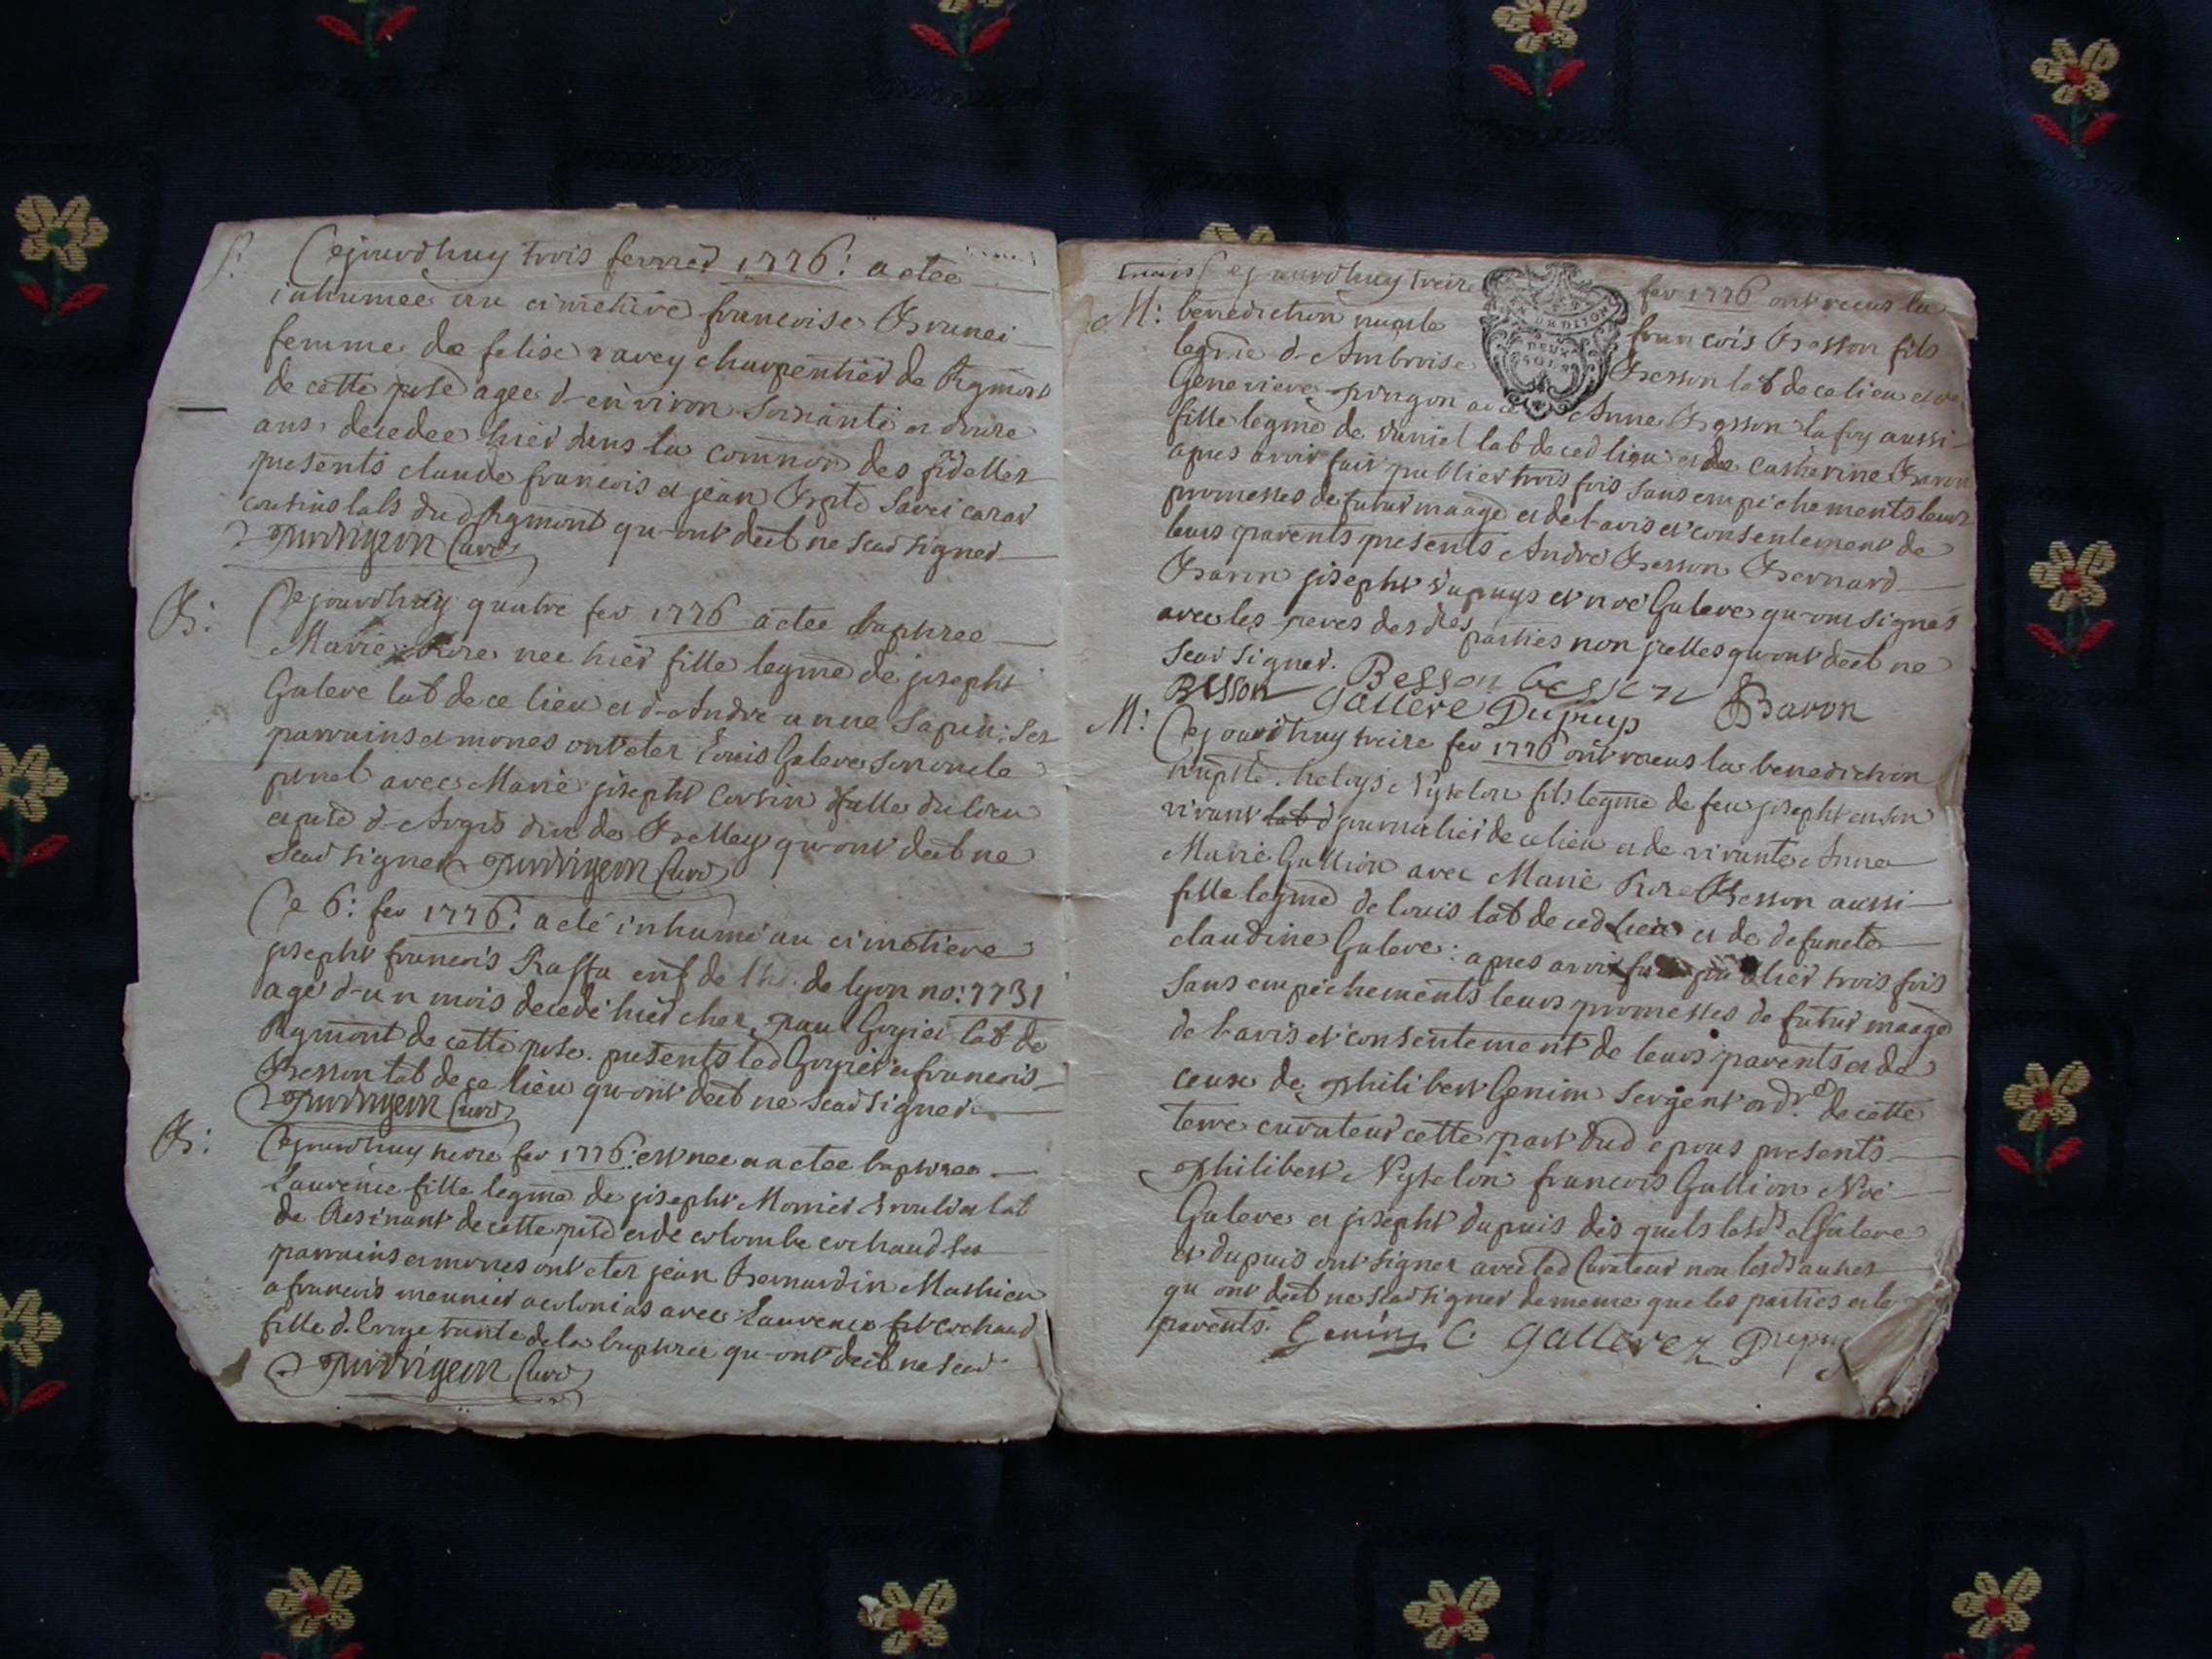 S: Cejourdhuy trois fevrier 1776: a etee
inhumee au cimetiere francoise Brunei
femme de felise ravey charpentier de Rgmont
de cette psse agee d-environ soixante et douze
ans, decedee hier dans la comnon des fidelles
presents claude francois et jean Bpte Savei
cousins labs dud Rgmont qu-ont declt ne scav signer
curé
B: Cejourdhuy quatre fev 1776 a etee baptizee
Marie Rose nee hier fille legme de joseph
Galere lab de ce lieu et d-Andre anne Sapin: ses
parrains et mones ont etez Louis Galere son oncle
pnel avec Marie joseph Corsin fille du lieu
et psse d-Argis dioc de Belley qu-ont declt ne
scav signer curé
Ce 6: fev 1776: a eté inhumé au cimetiere
joseph francois Raffa enf de de lyon no: 7731
agé d-un mois decedé hier chez paul Goyiei lab de
Rgmont de cette psse. presents led Goyiei et francois
Besson lab de ce lieu qu-ont declt ne scav signer
curé
B: Cejourdhuy fev 1776: est nee et a etee baptizee
Laurence fille legme de joseph Monier lab
de Resinand de cette psse et de colombe cochaud ses
parrains et mones ont etez jean Bernardin Mathieu
a francois meunier a colonias avec Laurence fil cochaud
fille d. tante de la baptizee qu-ont declt ne scav
curé
Cejourdhuy treize fev 1776 ont recus la
M: benediction nuple francois Besson fils
legme d-Ambroise Besson lab de ce lieu et de
Genevieve pongon avec Anne Besson aussi
fille legme de daniel lab de ced lieu et de Catherine Baron
apres avoir fait publier trois fois sans empechements leurs
promesses de futur maage et de l-avis et consentement de
leurs parents presents André Besson Bernard
Baron joseph dupuys et noé Galere qu-ont signés
avec les peres des dtes parties non jcelles qu-ont declt ne
scav signer.
Besson Besson besson Baron
Gallere Dupuys
M: Cejourdhuy treize fev 1776 ont recus la benediction
nuptle fils legme de feu joseph en son
vivant lab d journalier de ce lieu et de vivante Anne
Marie Gallion avec Marie Rose Besson aussi
fille legme de louis lab de ced lieu et de defuncte
claudine Galere: apres avoir publier trois fois
sans empechements leurs promesses de futur maage
de l-avis et consentement de leurs parents et de
ceux de philibert Genin Sergent ordre de cette
terre curateur cette part dud epoux presents
philibert francois Gallion Noé
Galere et joseph dupuis des quels lesds Galere
et dupuis ont signez avec led Curateur non lesds autres
qu ont declt ne scav signer de meme que les parties et les
parents. Genin C. Gallerez Dupuy